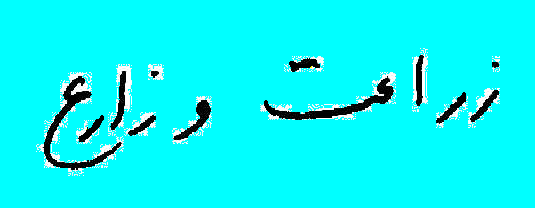 زراعت و زارع